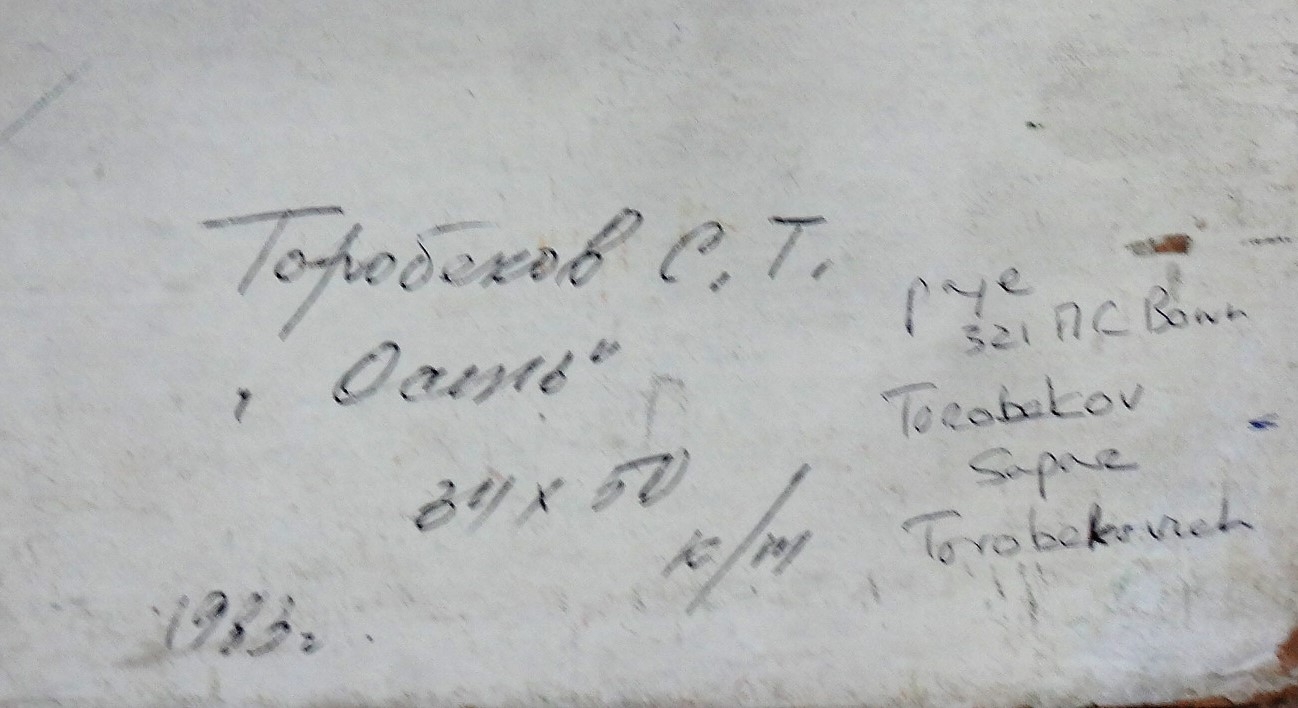 Торобеков С. Т.
„Осень"
34 x 50
к/м
1983г.
page
321 ПС Bown
Torobekov
Sapar
Torobekovich